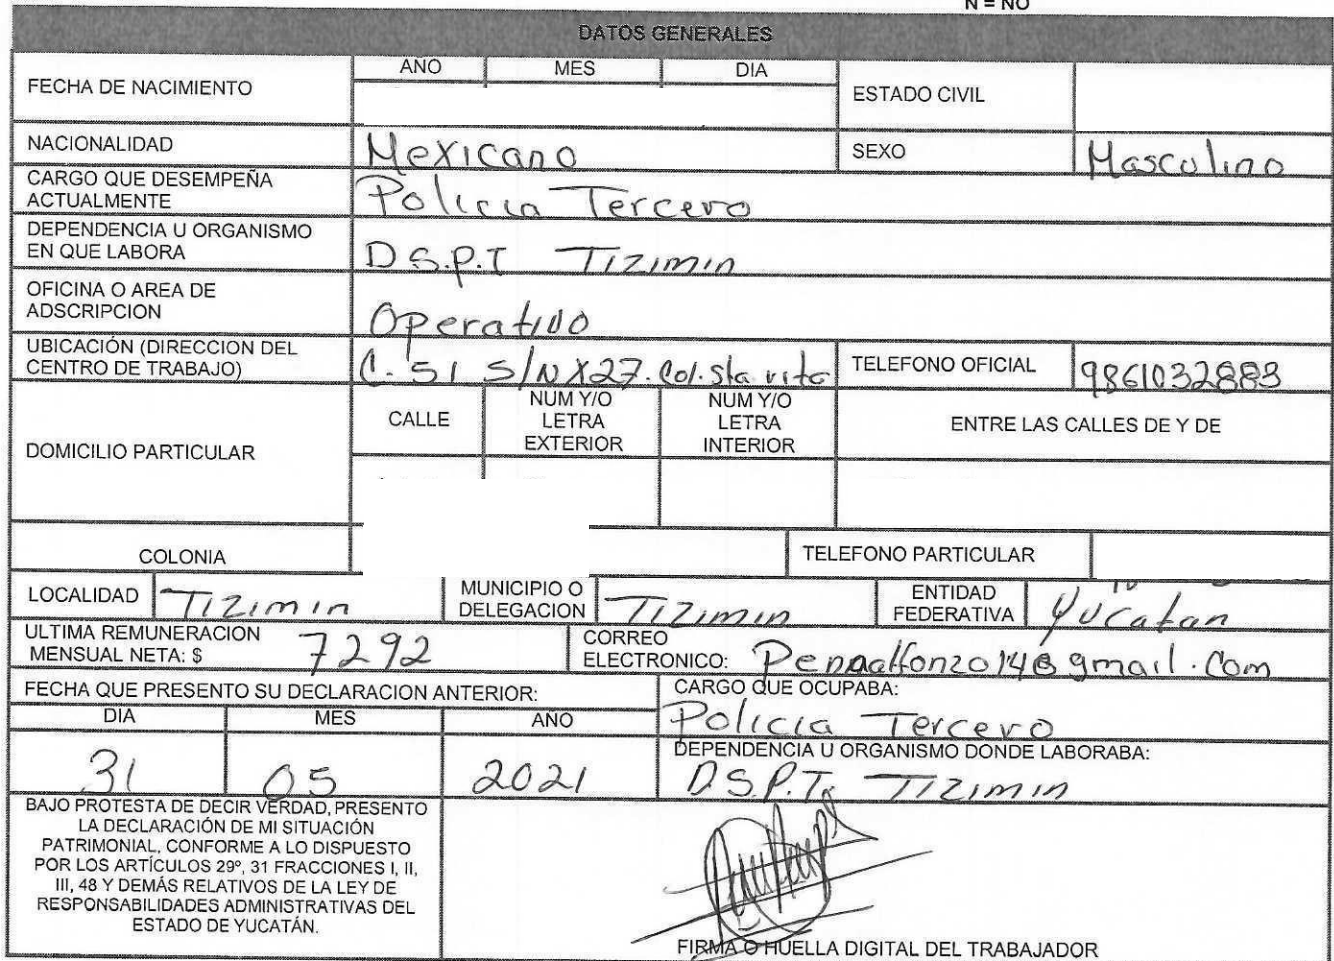 N = NO
DATOS GENERALES
FECHA DE NACIMIENTO
AÑO MES DIA
ESTADO CIVIL
NACIONALIDAD Mexicano SEXO Masculino
CARGO QUE DESEMPEÑA
ACTUALMENTE Policia Tercero
DEPENDENCIA U ORGANISMO
EN QUE LABORA D.S.P.T Tizimin
OFICINA O AREA DE
ADSCRIPCION Operativo
UBICACIÓN (DIRECCION DEL
CENTRO DE TRABAJO) C. 51 S/N X27. Col. Sta rita TELEFONO OFICIAL 9861032883
DOMICILIO PARTICULAR
CALLE
NUM Y/O
LETRA
EXTERIOR
NUM Y/O
LETRA
INTERIOR
ENTRE LAS CALLES DE Y DE
COLONIA TELEFONO PARTICULAR
LOCALIDAD Tizimin MUNICIPIO O
DELEGACION Tizimin ENTIDAD
FEDERATIVA Yucatan
ULTIMA REMUNERACION
MENSUAL NETA: $ 7292 CORREO
ELECTRONICO: Penaalfonzo14@gmail.Com
FECHA QUE PRESENTO SU DECLARACION ANTERIOR:
DIA MES AÑO
31 05 2021
CARGO QUE OCUPABA:
Policia Tercero
DEPENDENCIA U ORGANISMO DONDE LABORABA:
D.S.P.T. Tizimin
BAJO PROTESTA DE DECIR VERDAD, PRESENTO
LA DECLARACIÓN DE MI SITUACIÓN
PATRIMONIAL, CONFORME A LO DISPUESTO
POR LOS ARTÍCULOS 29º, 31 FRACCIONES I, II,
III, 48 Y DEMÁS RELATIVOS DE LA LEY DE
RESPONSABILIDADES ADMINISTRATIVAS DEL
ESTADO DE YUCATÁN.
FIRMA O HUELLA DIGITAL DEL TRABAJADOR